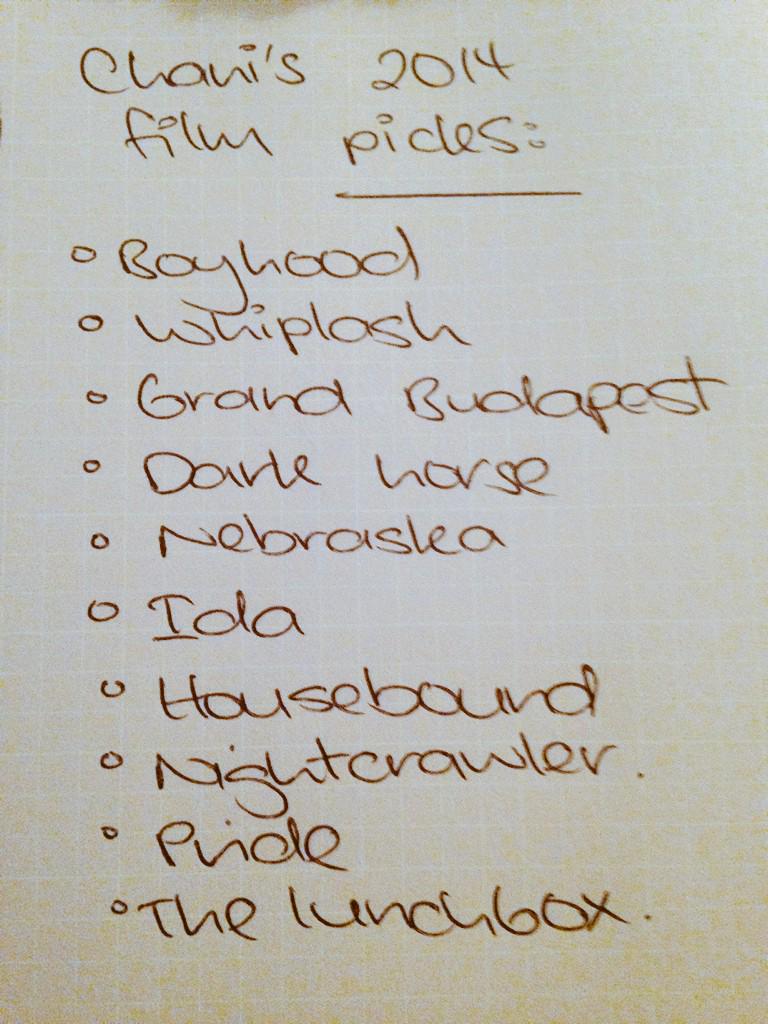 Chani's 2014
film picks:
Boyhood
Whiplash
Grand Budapest
Dark horse
Nebraska
Ida
Housebound
Nightcrawler.
Pride
The lunchbox.